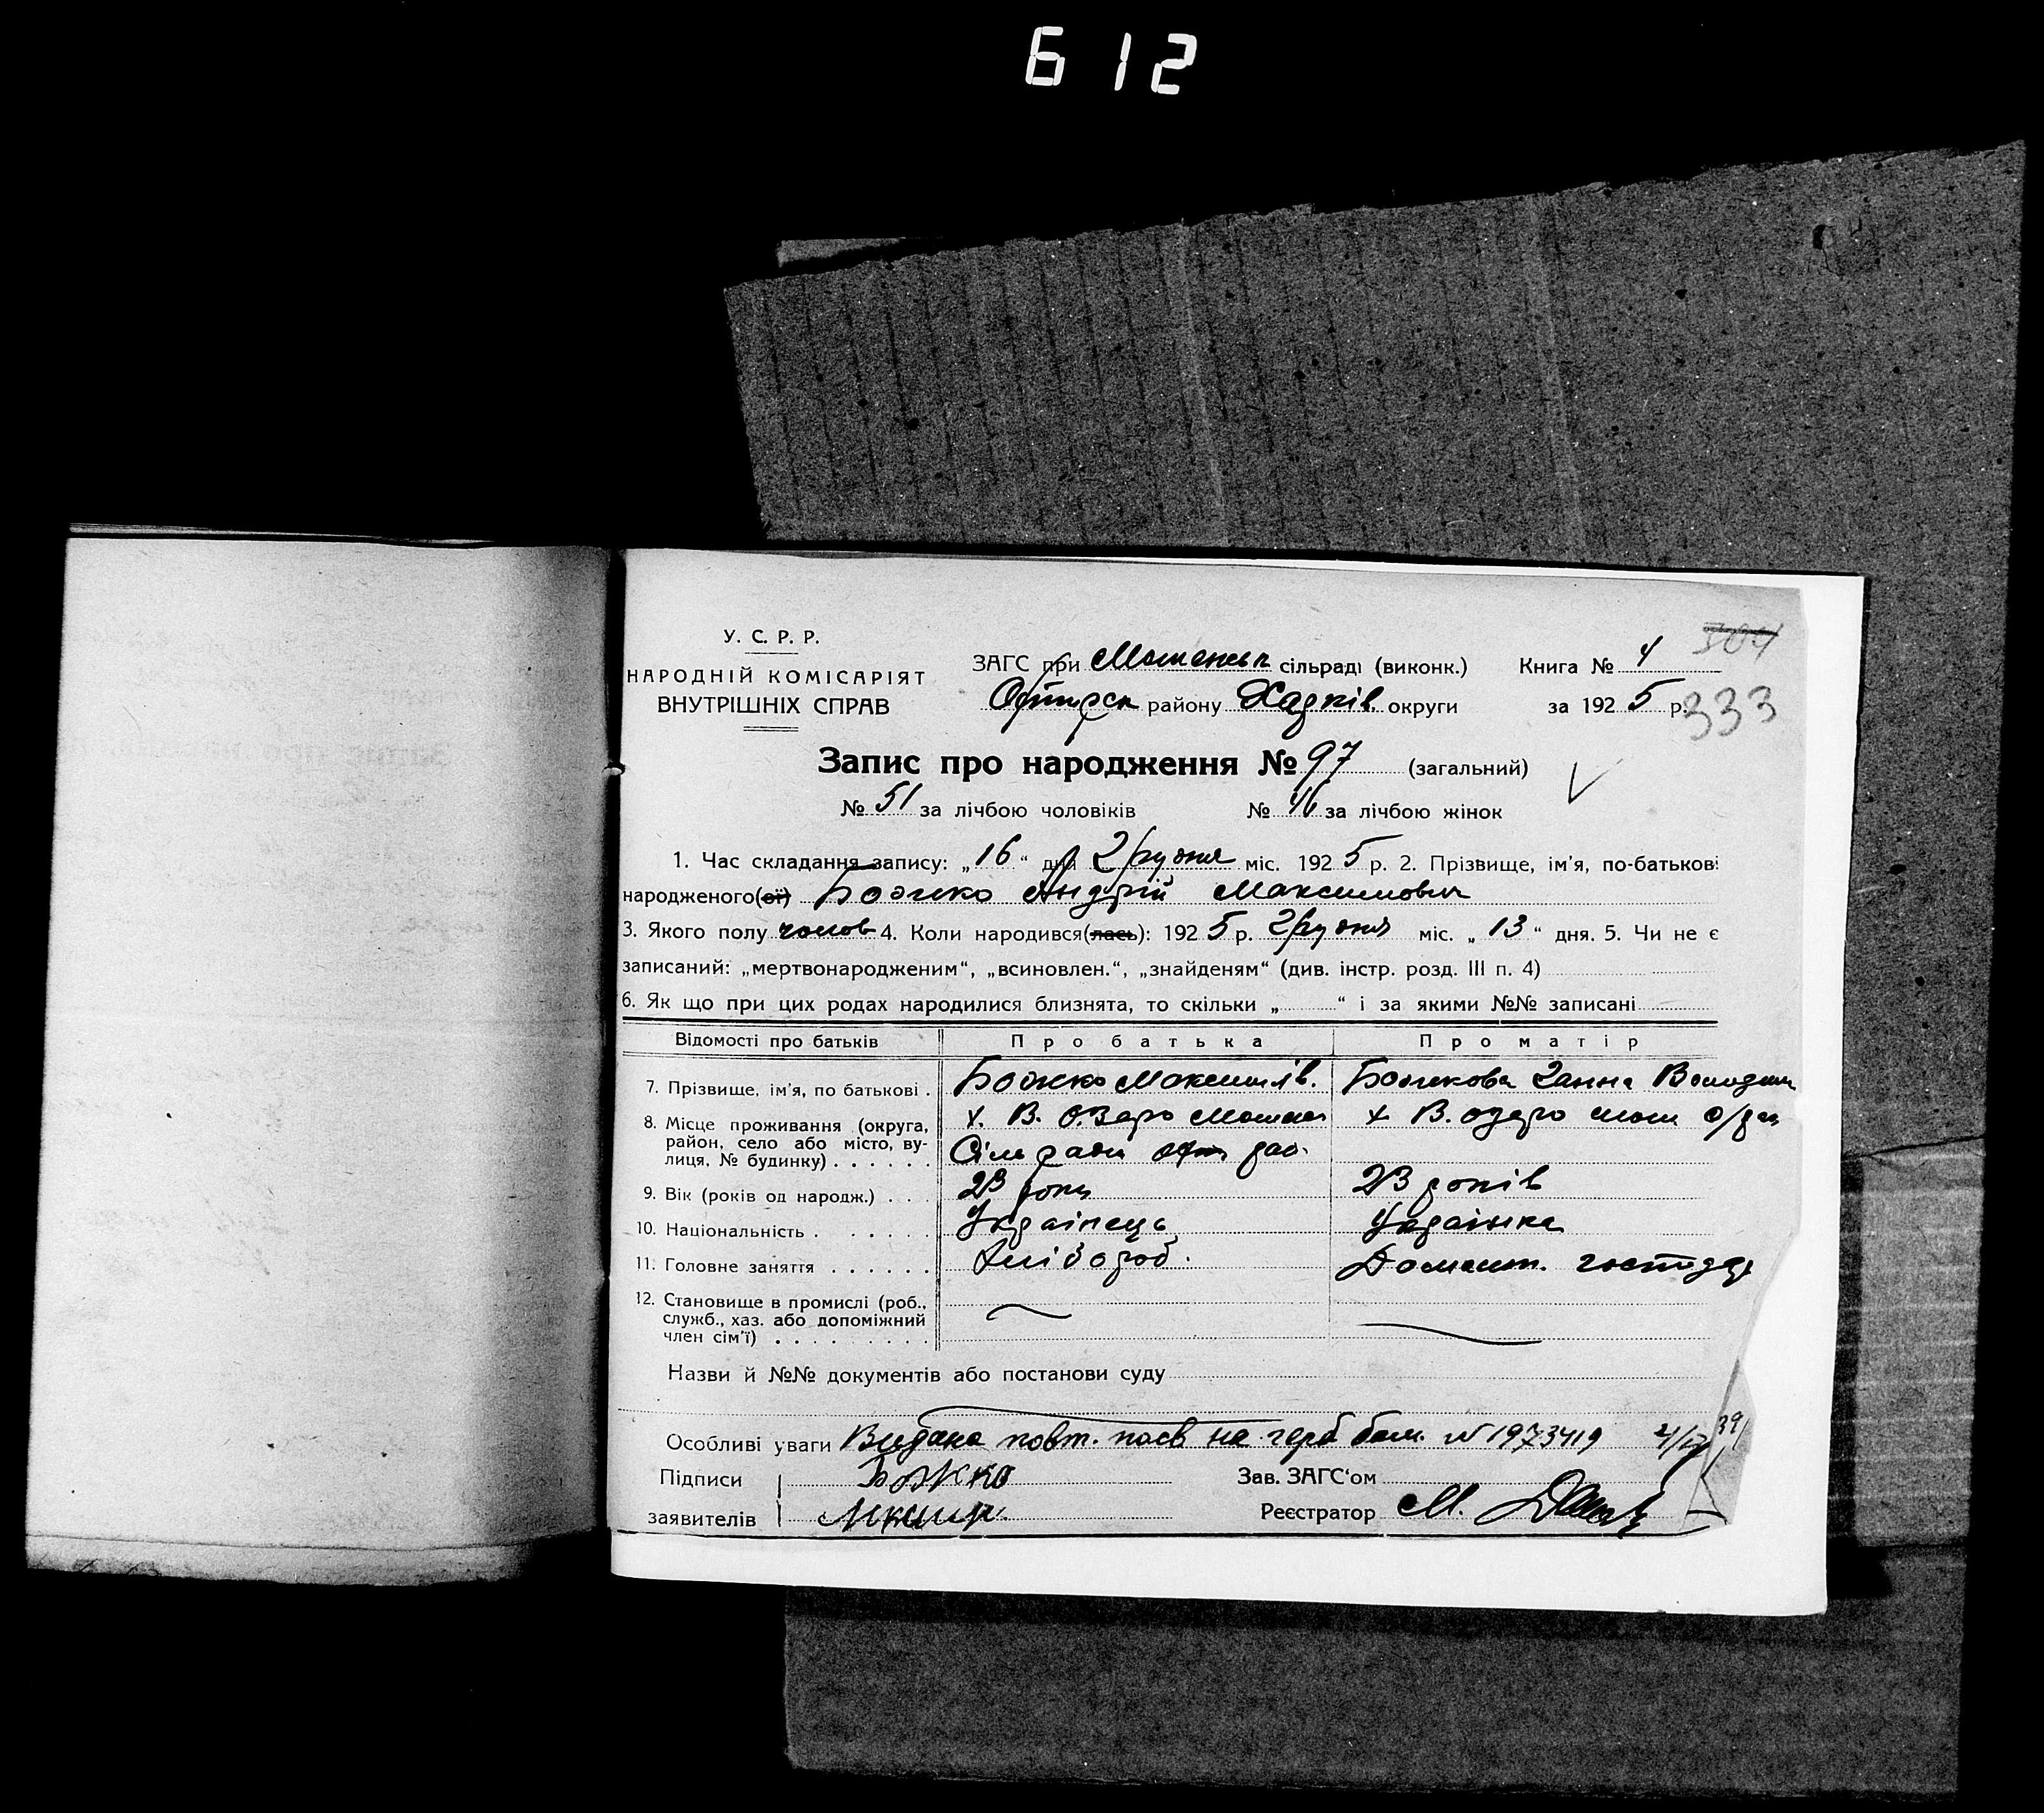 612
У. С. Р. Р.
НАРОДНІЙ КОМІСАРІЯТ
ВНУТРІШНІХ СПРАВ
ЗАГС при сільраді (виконк.) Книга № 4
району Харків. округи за 1925 р.
333
Запис про народження № 97 (загальний)
№ 51 за лічбою чоловіків № 46 за лічбою жінок
1. Час складання запису: „16“ дня Грудня міс. 1925 р. 2. Прізвище, ім'я, по-батькові
народженого(ої) Божко Андрій Максимович
3. Якого полу чолов 4. Коли народився(лась): 1925 р. Грудня міс. „13“ дня. 5. Чи не є
записаний: „мертвонародженим“, „всиновлен.“, „знайденям“ (див. інстр. розд. III п. 4)
6. Як що при цих родах народилися близнята, то скільки „ “ і за якими №№ записані
Відомості про батьків Про батька Про матір
7. Прізвище, ім'я, по батькові . Божко Максим Ів. Божкова Ганна
8. Місце проживання (округа, х. В. Озеро х В. Озеро
район, село або місто, ву- Сільради
лиця, № будинку) . . . . . .
9. Вік (років од народж.) . . . 23 роки 23 років
10. Національність . . . . . . Українець Українка
11. Головне заняття . . . . . . Хлібороб. Домашн. господар
12. Становище в промислі (роб.,
служб., хаз. або допоміжний
член сім'ї) . . . . . . . . .
Назви й №№ документів або постанови суду
Особливі уваги Видана повт. на герб. № 1973419
Підписи Божко Зав. ЗАГС'ом
заявителів Реєстратор М.